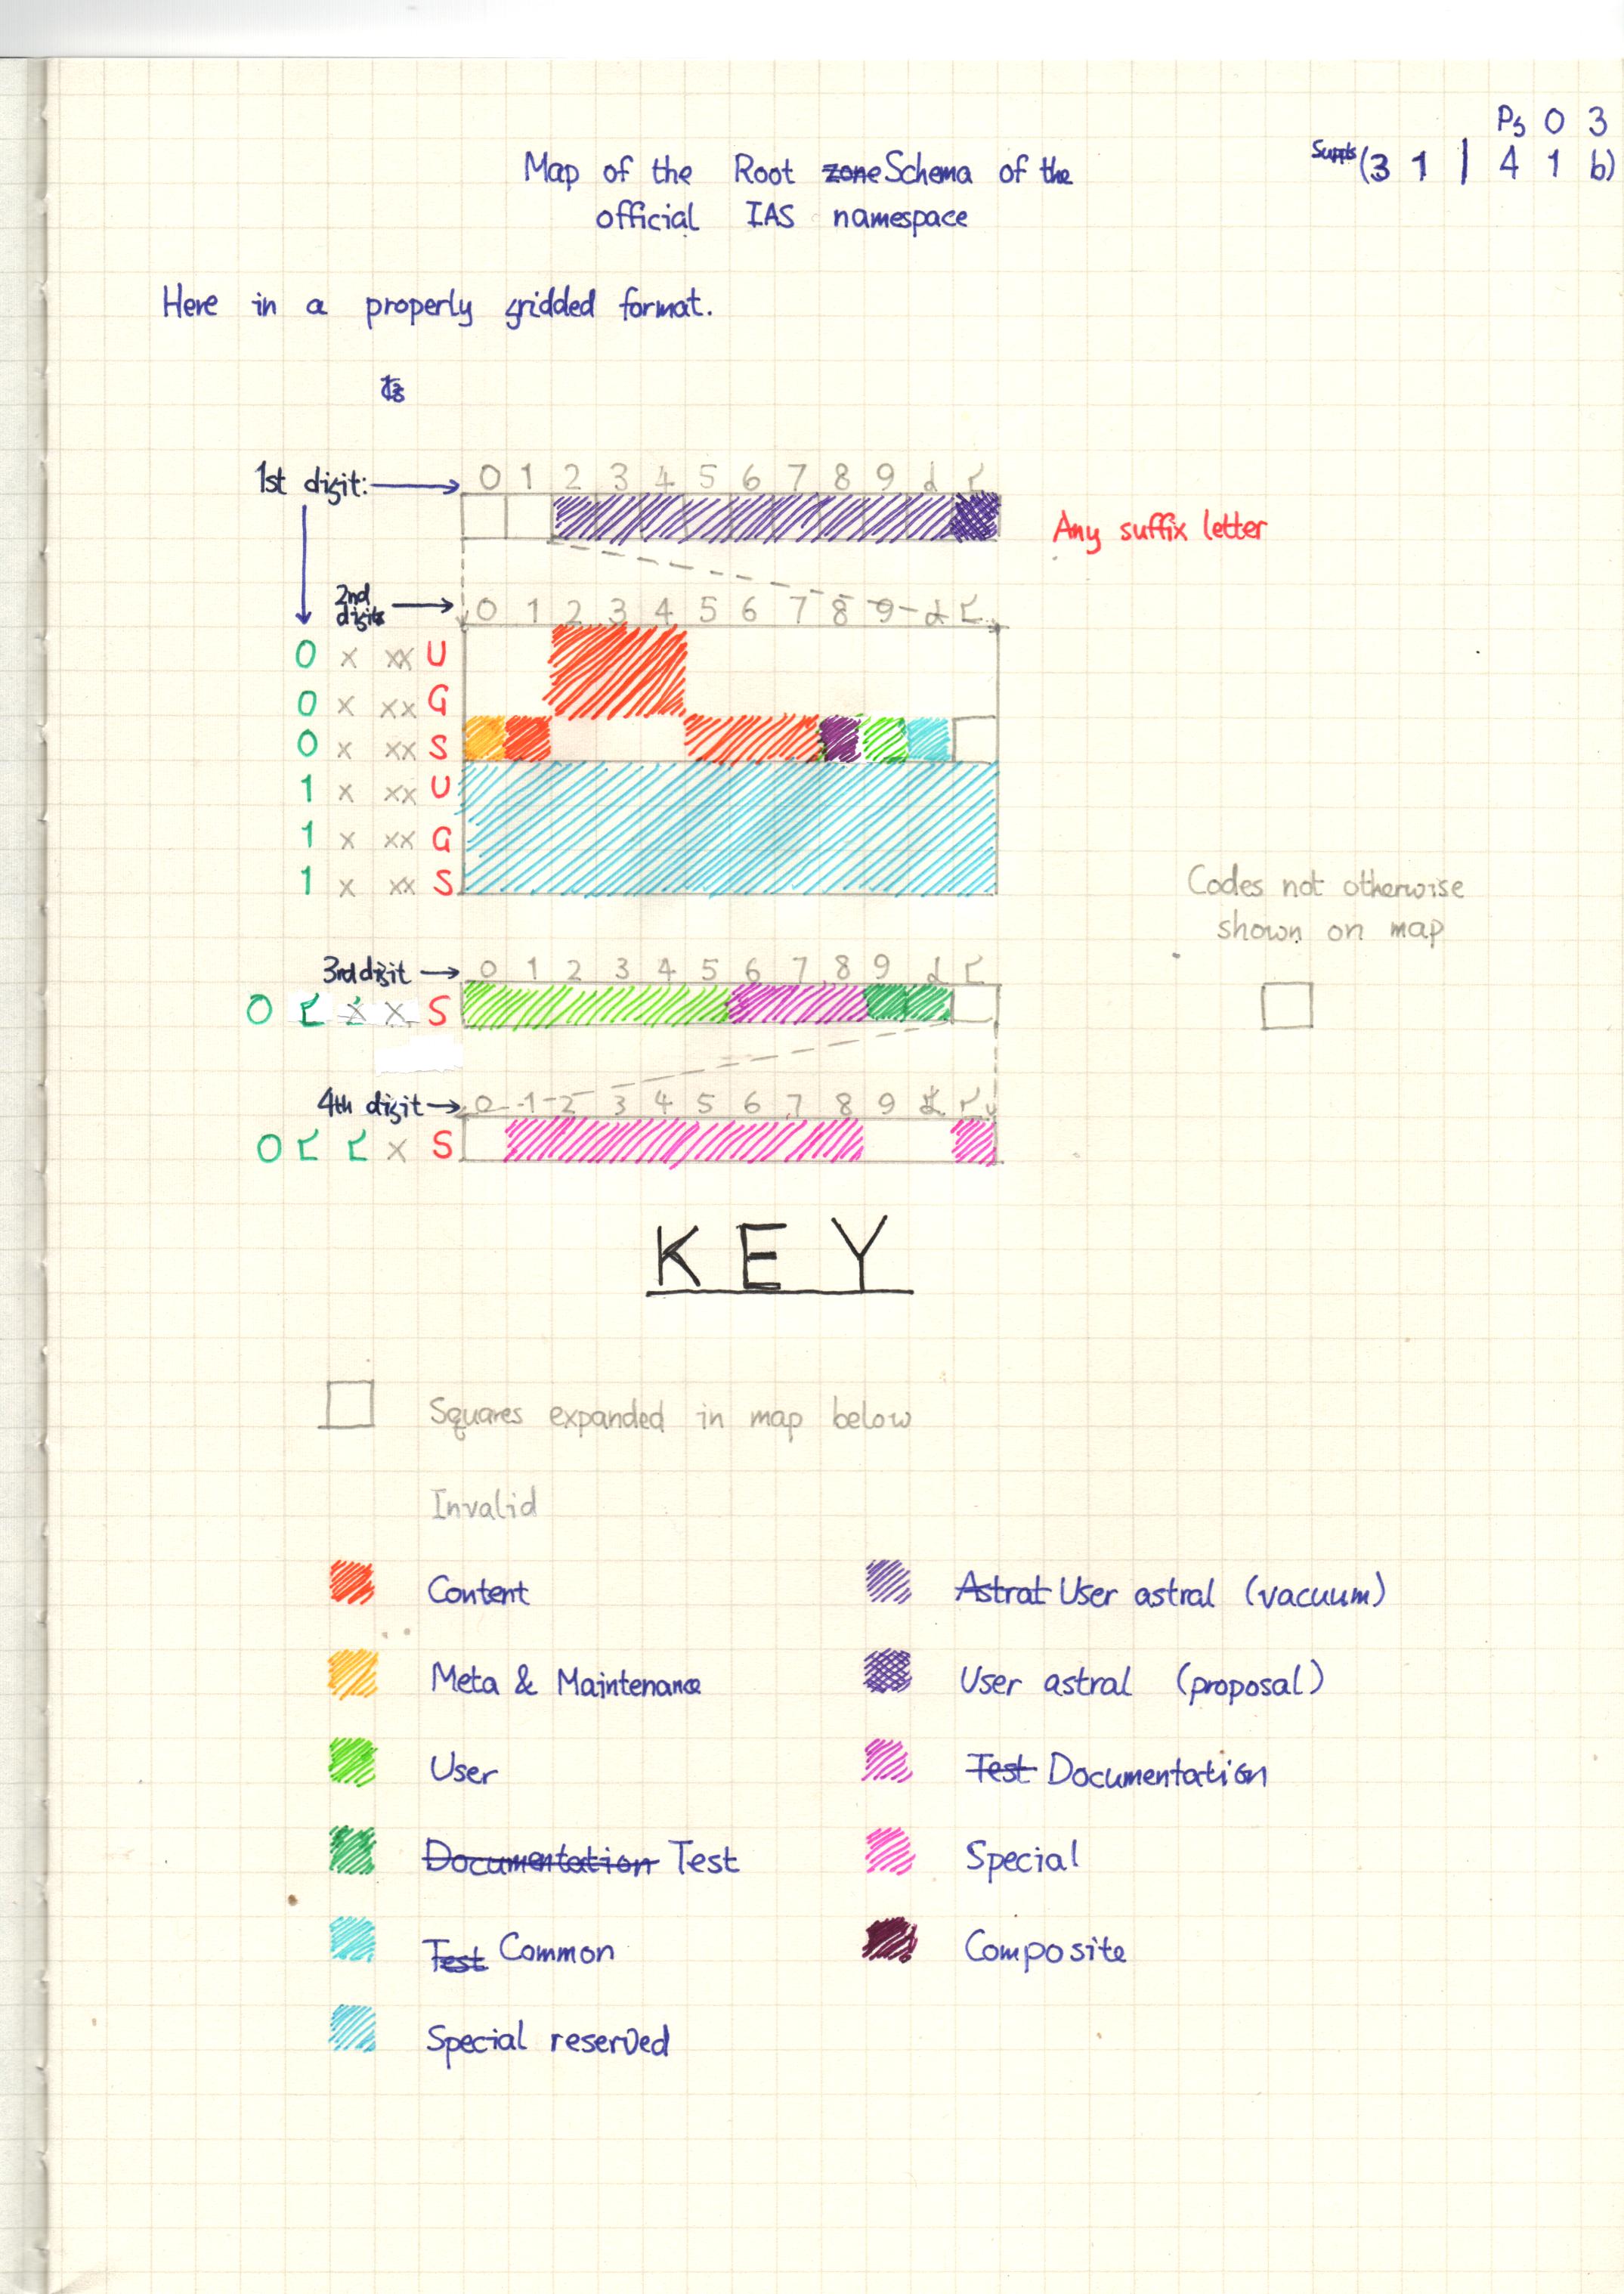 Pg 0 3
Suppls (3 1 | 4 1 b)
Map of the Root zone Schema of the
official IAS namespace
Here in a properly gridded format.
1st digit: 0 1 2 3 4 5 6 7 8 9 d ج
Any suffix letter
2nd digit 0 1 2 3 4 5 6 7 8 9 d
0 x xx U
0 x xx G
0 x xx S
1 x xx U
1 x xx G
1 x xx S
Codes not otherwise
shown on map
3rd digit 0 1 2 3 4 5 6 7 8 9 d
0 x x S
4th digit 0 1 2 3 4 5 6 7 8 9 d
0 x S
KEY
Squares expanded in map below
Invalid
Content
Astral User astral (vacuum)
Meta & Maintenance
User astral (proposal)
User
Test Documentation
Documentation Test
Special
Test Common
Composite
Special reserved